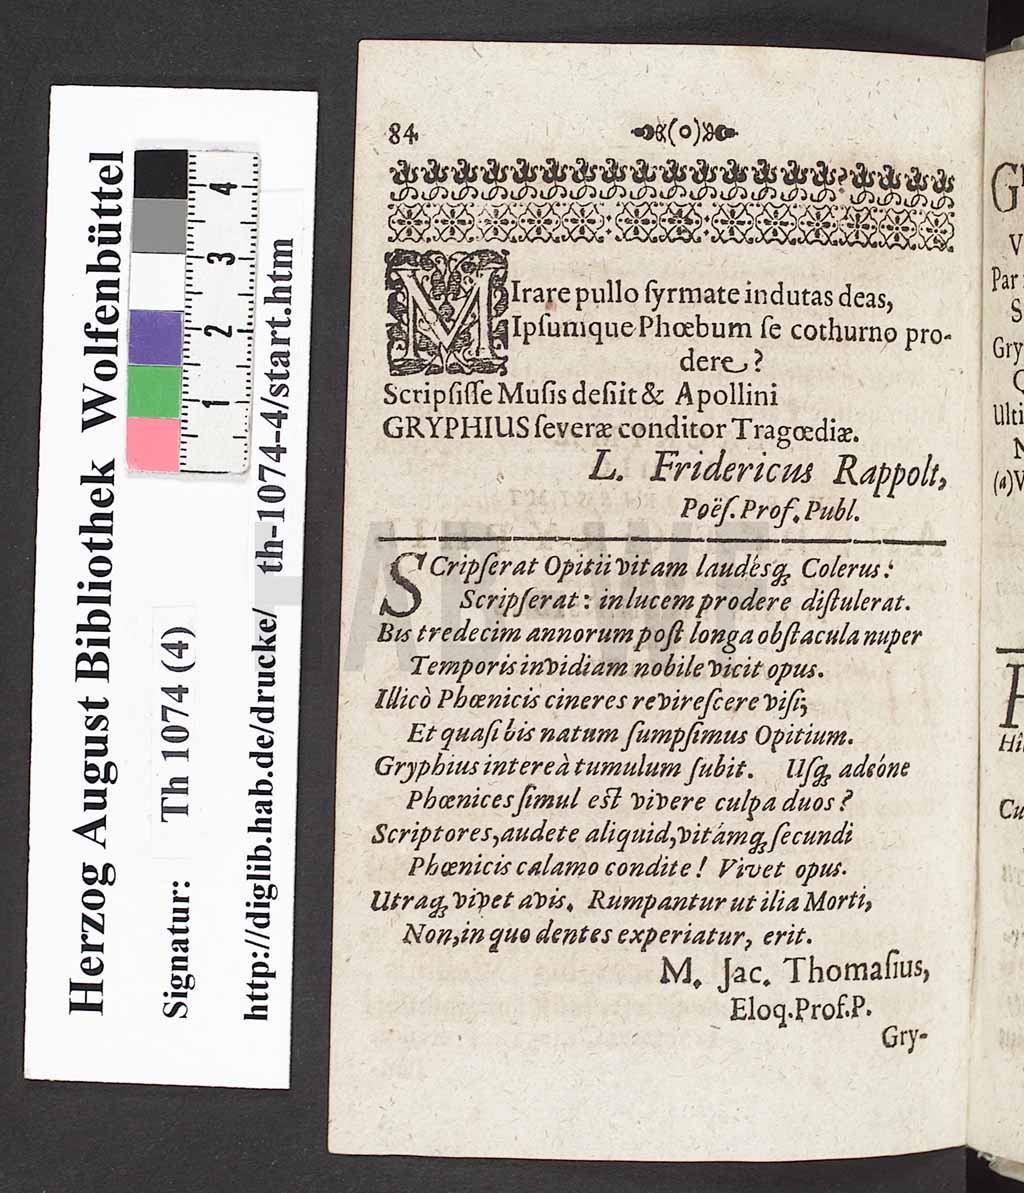 Herzog August Bibliothek Wolfenbüttel
Signatur: Th 1074 (4)
http://diglib.hab.de/drucke/ th-1074-4/start.htm
1 2 3 4
84 (o)
MIrare pullo ſyrmate indutas deas,
Ipſumque Phœbum ſe cothurno pro-
dere?
Scripſiſſe Muſis deſiit & Apollini
GRYPHIUS ſeveræ conditor Tragœdiæ.
L. Fridericus Rappolt,
Poëſ. Prof. Publ.
SCripſerat Opitii vitam laudésq́ꝫ Colerus:
Scripſerat: in lucem prodere diſtulerat.
Bis tredecim annorum poſt longa obſtacula nuper
Temporis invidiam nobile vicit opus.
Illicò Phœnicis cineres revireſcere viſi;
Et quaſi bis natum ſumpſimus Opitium.
Gryphius intereà tumulum ſubit. Uſqꝫ adeóne
Phœnices ſimul eſt vivere culpa duos?
Scriptores, audete aliquid, vitámqꝫ ſecundi
Phœnicis calamo condite! Vivet opus.
Utraqꝫ vivet avis. Rumpantur ut ilia Morti,
Non, in quo dentes experiatur, erit.
M. Jac. Thomaſius,
Eloq. Prof. P.
Gry-
V
Par
S
Gry
Ulti
N
(a)V
Cu